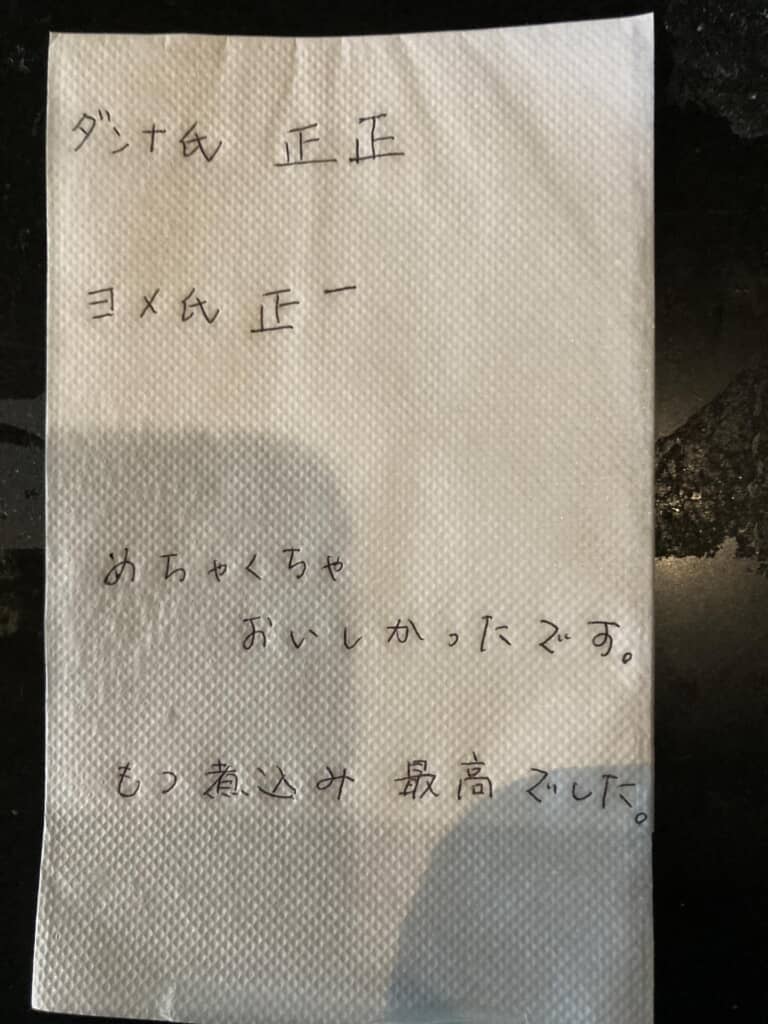 ダンナ氏 正正
ヨメ氏 正一
めちゃくちゃ
おいしかったです。
もつ煮込み 最高でした。